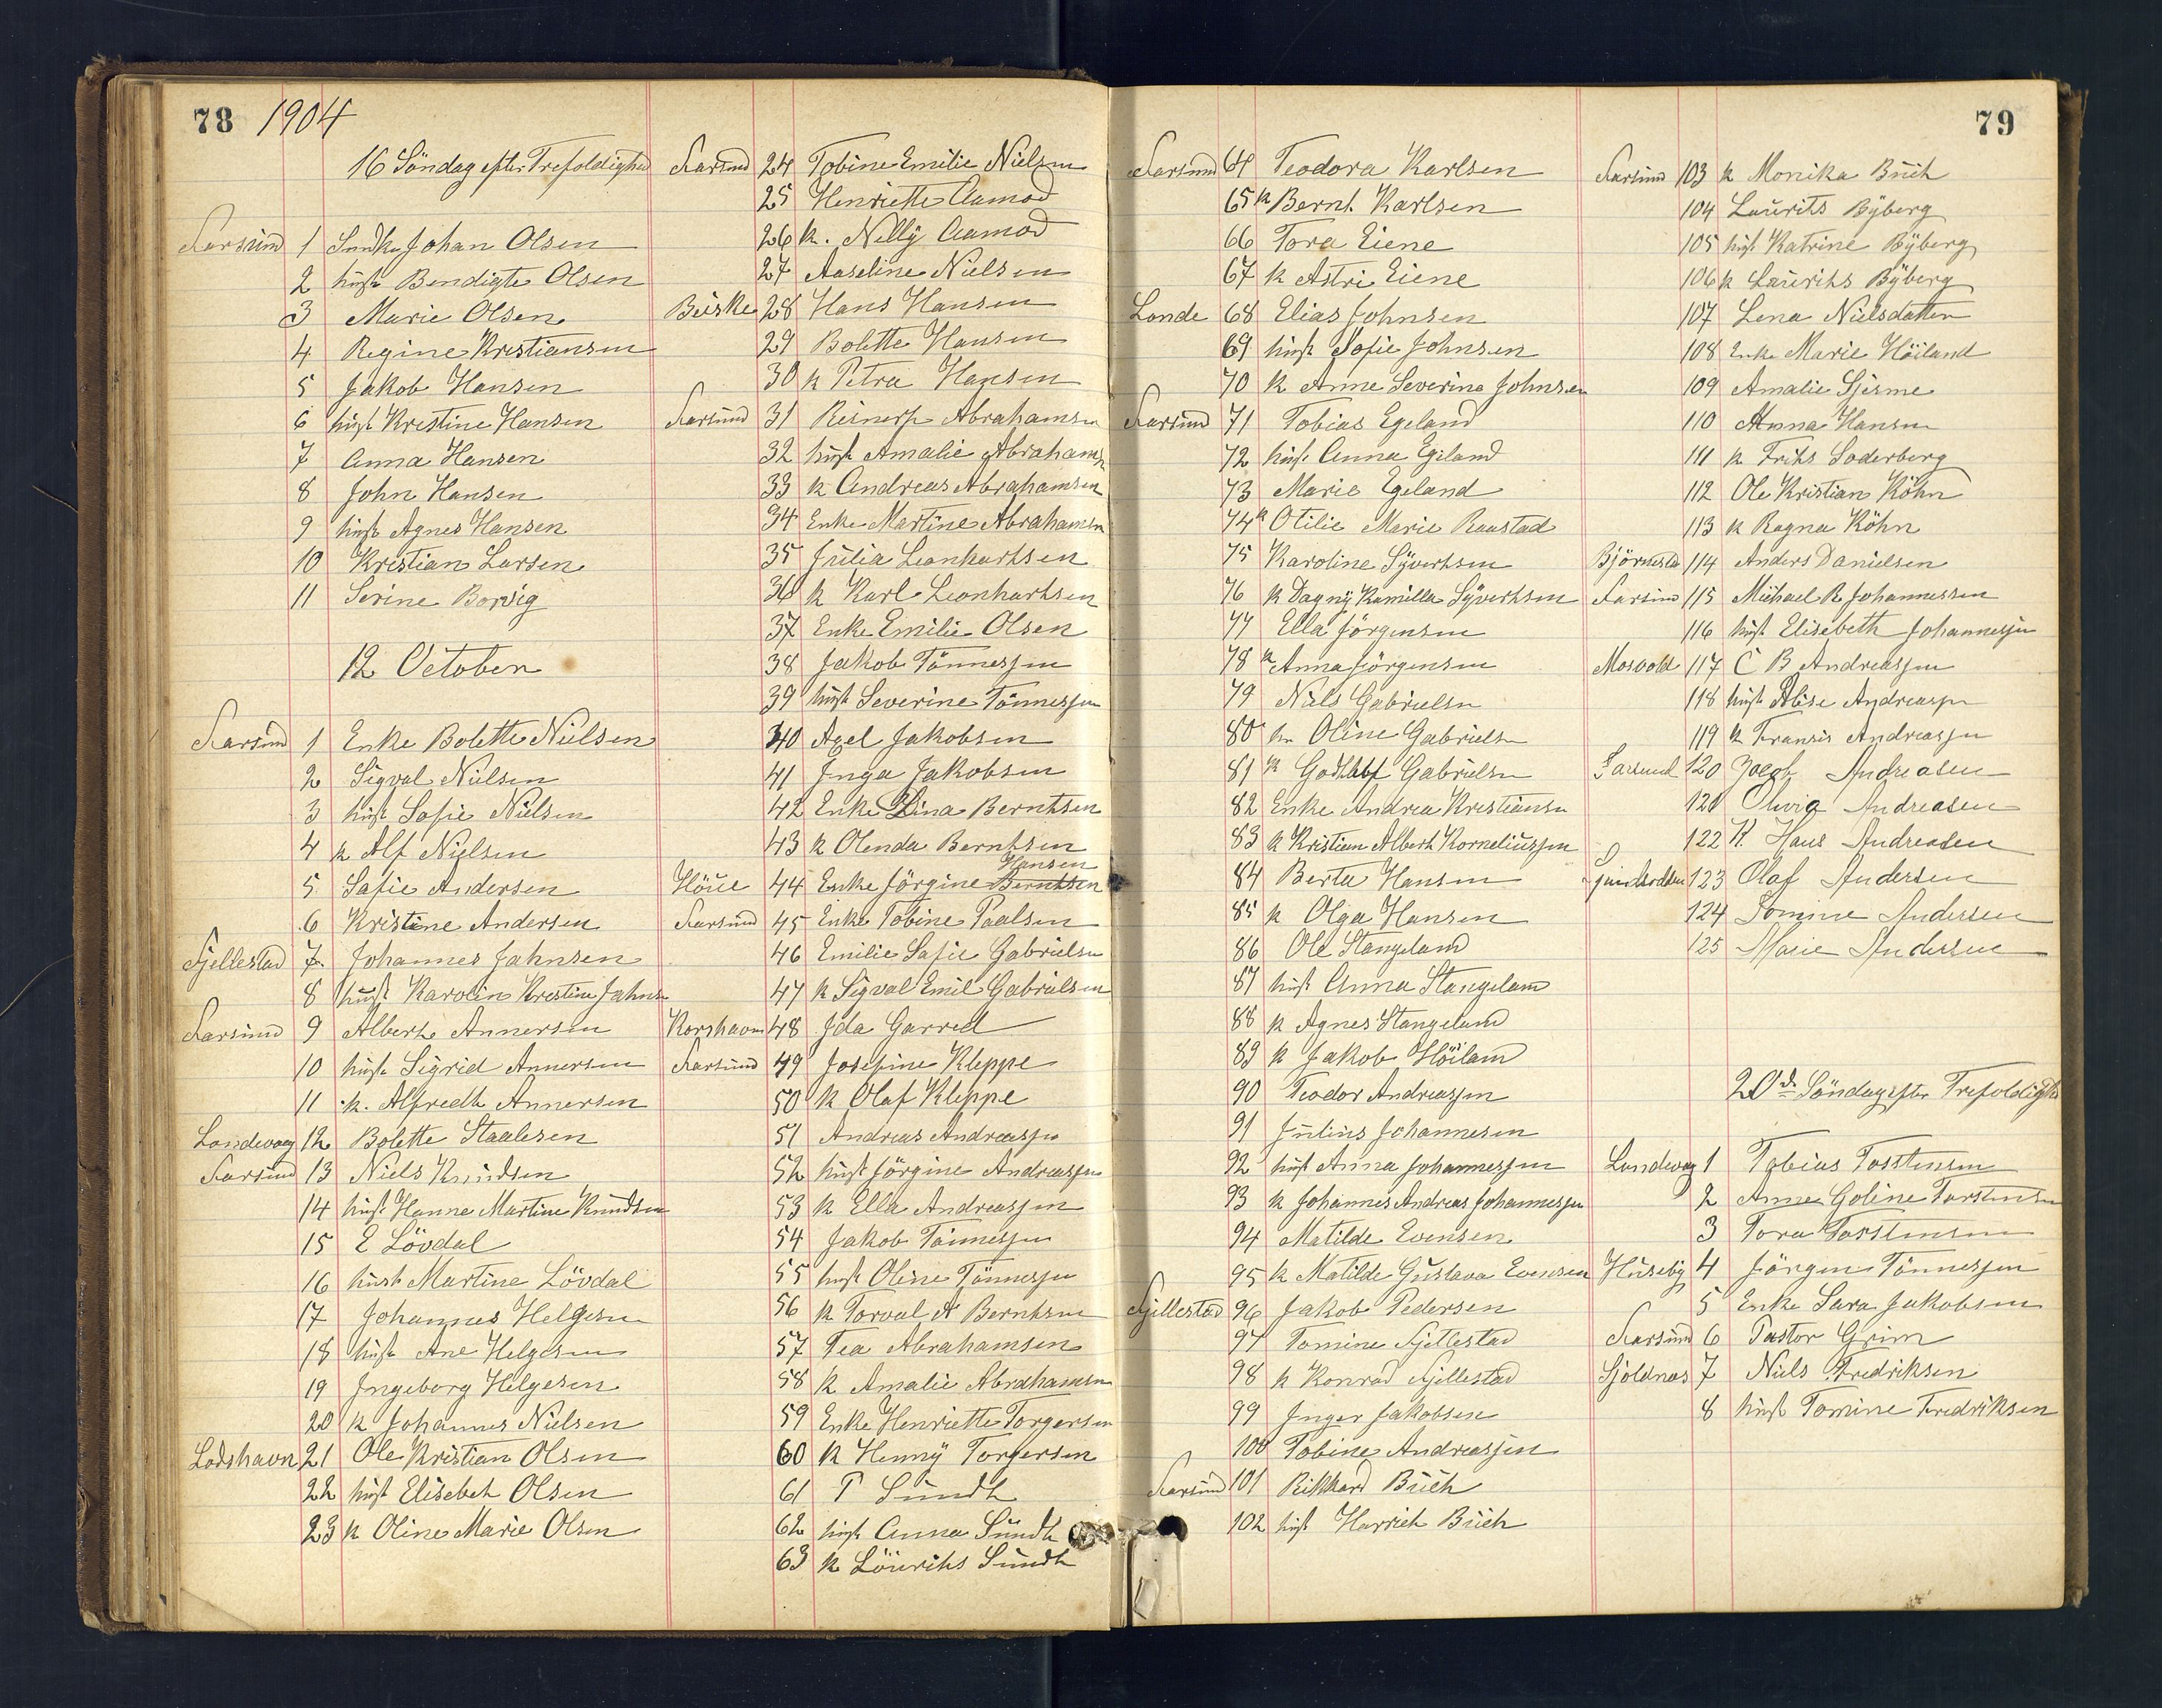 78 1904
16 Söndag efter Trefoldighed
Farsund 1 Johan Olsen
2 hust Bendigte Olsen
3 Marie Olsen
4 Regine Kristiansen
5 Jakob Hansen
6 hust Kristine Hansen
7 Anna Hansen
8 John Hansen
9 hust Agnes Hansen
10 Kristian Larsen
11 Serine Borvig
12 October
Farsund 1 Enke Bolette Nielsen
2 Sigval Nielsen
3 hust Sofie Nielsen
4 k Alf Nielsen
5 Sofie Andersen
6 Kristine Andersen
Fjellestad 7 Johannes Jahnsen
8 hust Karolin Kristine Jahns
Farsund 9 Albert Annersen
10 hust Sigrid Annersen
11 k. Alfredh Annersen
Londevaag 12 Bolette Staalesen
Farsund 13 Niels Knudsen
14 hust Hanne Martine Knudsen
15 E Lövdal
16 hust Martine Lövdal
17 Johannes Helgesen
18 hust Ane Helgesen
19 Ingeborg Helgesen
20 k Johannes Nielsen
Lodshavn 21 Ole Kristian Olsen
22 hust Elisebet Olsen
23 k Oline Marie Olsen
Farsund 24 Tobine Emilie Nielsen
25 Henriette Aamod
26 k. Nelly Aamod
27 Aaseline Nielsen
Buske 28 Hans Hansen
29 Bolette Hansen
30 k Petra Hansen
Farsund 31 Abrahamsen
32 hust Amalie Abrahams
33 k Andreas Abrahamsen
34 Enke Martine Abrahamsen
35 Julia Leonhartsen
36 k Karl Leonhartsen
37 Enke Emilie Olsen
38 Jakob Tönnessen
39 hust Severine Tönnessen
40 Axel Jakobsen
41 Inga Jakobsen
42 Enke Lina Berntsen
43 k Olenda Berntsen
Hansen
Höue 44 Enke Jörgine Berntsen
Farsund 45 Enke Tobine Paalsen
46 Emilie Sofie Gabrielsen
47 k Sigval Emil Gabrielsen
Korshavn 48 Ida Garred
Farsund 49 Josefine Kleppe
50 k Olaf Kleppe
51 Andreas Andreassen
52 hust Jörgine Andreassen
53 k Ella Andreassen
54 Jakob Tönnessen
55 hust Oline Tönnessen
56 k Torval A Berntsen
57 Tea Abrahamsen
58 k Amalie Abrahamsen
59 Enke Henriette Torgersen
60 k Henny Torgersen
61 T Sundt
62 hust Anna Sundt
63 k Löurits Sundt
79
Farsund 64 Teodora Karlsen
65 k Bernt Karlsen
66 Tora Eiene
67 k Astri Eiene
Lande 68 Elias Johnsen
69 hust Sofie Johnsen
70 k Anne Severine Johnsen
Farsund 71 Tobias Egeland
72 hust Anna Egeland
73 Marie Egeland
74 k Otilie Marie Raastad
75 Karoline Syvertsen
76 k Dagny Kamilla Syvertsen
77 Ella Jörgensen
78 k Anna Jörgensen
79 Niels Gabrielsen
80 hu Oline Gabrielsen
81 k Gabrielsen
82 Enke Andrea Kristiansen
83 k Kristian Albert Korneliussen
84 Berta Hansen
85 k Olga Hansen
86 Ole Stangeland
87 hust Anna Stangeland
88 k Agnes Stangeland
89 k Jakob Höiland
90 Teodor Andreassen
91 Julius Johannesen
92 hust Anna Johannessen
93 k Johannes Andreas Johannessen
94 Matilde Evensen
95 k Matilde Gustava Evensen
Fjellestad 96 Jakob Pedersen
97 Tomine Fjellestad
98 k Konrad Fjellestad
99 Inger Jakobsen
100 Tobine Andreassen
Farsund 101 Rikkard Buch
102 hust Harriet Buch
Farsund 103 k Monika Buch
104 Laurits Byberg
105 hust Katrine Byberg
106 k Laurits Byberg
107 Lena Nielsdatter
108 Enke Marie Höiland
109 Amalie
110 Anna Hansen
111 k Frits Soderberg
112 Ole Kristian Köhn
113 k Ragna Köhn
114 Anders Danielsen
Farsund 115 Michael R Johannessen
116 hust Elisebeth Johannessen
Mosvold 117 C B Andreassen
118 hust Alise Andreassen
119 k Fransis Andreassen
Farsund 120 Jacob Andreasen
121 Olivia Andreasen
122 K. Hans Andreasen
123 Olaf Andersen
124 Tomine Andersen
125 Marie Andersen
20de Söndag efter Trefoldighed
Lundevaag 1 Tobias Torstensen
2 Anne Goline Torstensen
3 Tora Torstensen
Huseby 4 Jörgen Tönnessen
5 Enke Sara Jakobsen
Farsund 6 Pastor Grim
Sjoldnes 7 Niels Fredriksen
8 hust Tomine Fredriksen